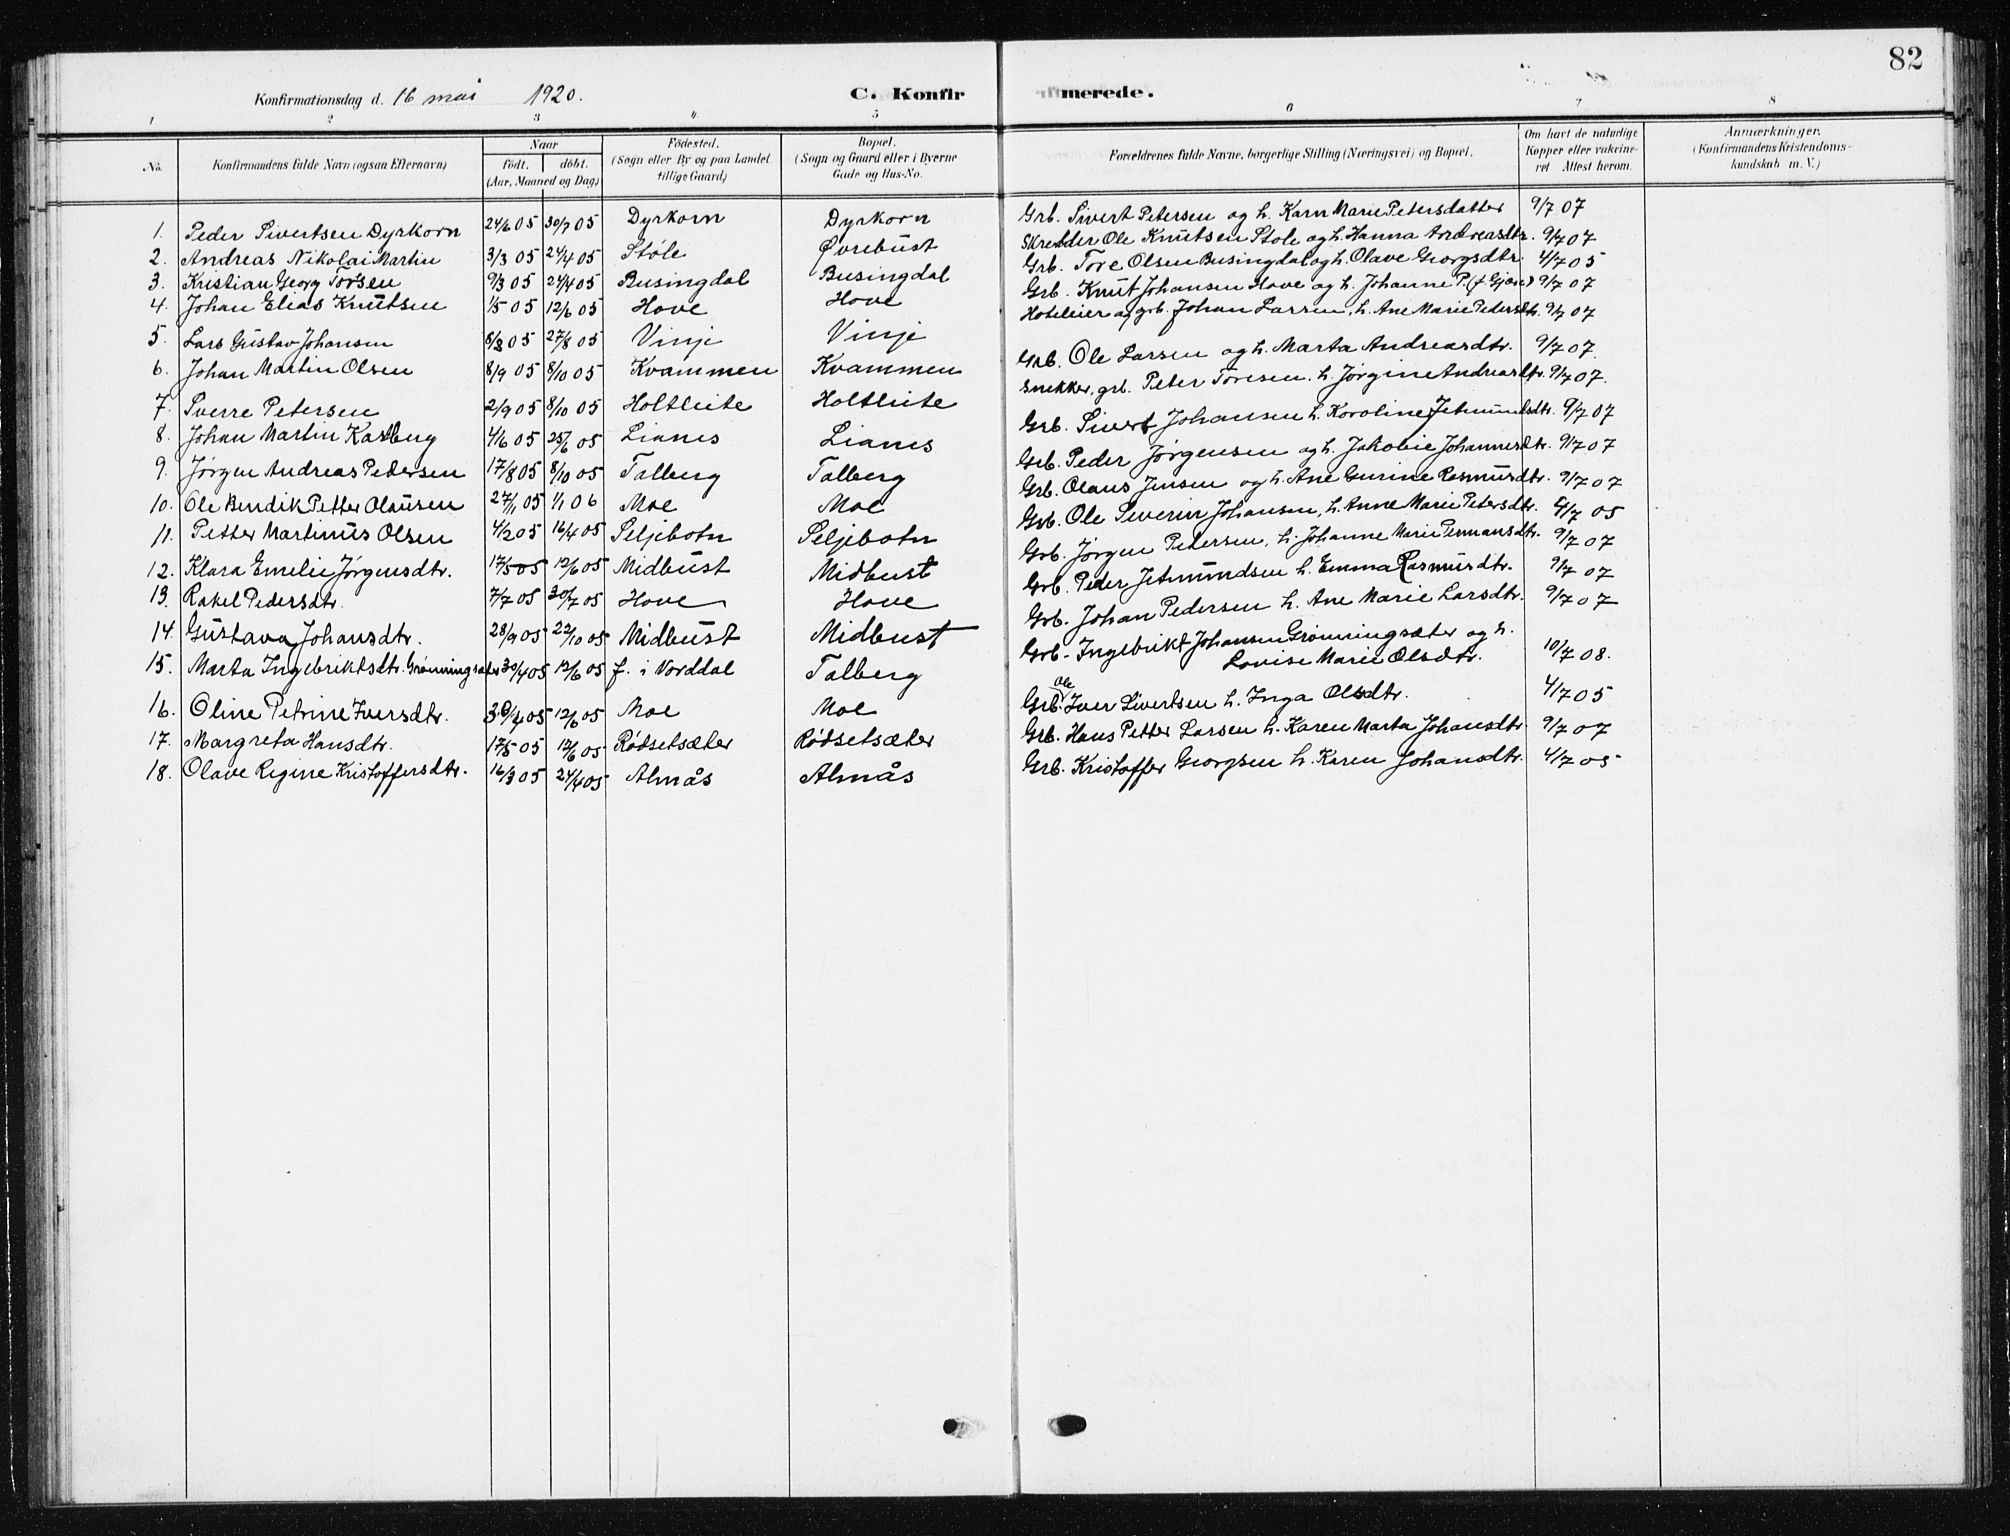 82
Konfirmationsdag d. 16 mai 1920.
C. Konfirmerede.
1 2 3 4 5 6 7 8
No. Konfirmandens fulde Navn (ogsaa Efternavn) Naar født. døbt. (Aar, Maaned og Dag) Fødested. (Sogn eller By og paa Landet tillige Gaard) Bopæl. (Sogn og Gaard eller i Byerne Gade og Hus-No. Forældrenes fulde Navne, borgerlige Stilling (Næringsvei) og Bopæl. Om havt de naturlige Kopper eller vakcineret Attest herom. Anmærkninger. (Konfirmandens Kristendomskundskab m. V.)
1. Peder Sivertsen Dyrkorn 24/6 05 30/7 05 Dyrkorn Dyrkorn Grb. Sivert Petersen og h. Karn Marie Petersdatter 9/7 07
2. Andreas Nikolai Martin 3/3 05 24/4 05 Støle Øvrebust Skredder Ole Knutsen Støle og h. Hanna Andreasdtr. 9/7 07
3. Kristian Georg Torsen 9/3 05 24/4 05 Busingdal Busingdal Grb. Tore Olsen Busingdal og h. Olave Georgsdtr. 4/7 05
4. Johan Elias Knutsen 1/5 05 12/6 05 Hove Hove Grb. Knut Johansen Hove og h. Johanne P. 9/7 07
5. Lars Gustav Johansen 8/8 05 27/8 05 Vinje Vinje Hoteleier og grb. Johan Larsen, h. Ane Marie Petersdtr. 9/7 07
6. Johan Martin Olsen 8/9 05 8/10 05 Kvammen Kvammen Grb. Ole Larsen og h. Marta Andreasdtr. 9/7 07.
7. Sverre Petersen 2/9 05 8/10 05 Holtleite Holtleite Snekker, grb. Peter Toresen, h. Jørgine Andreasdtr. 9/7 07.
8. Johan Martin 4/6 05 25/6 05 Lianes Lianes Grb. Sivert Johansen h. Karoline Jetmundsdtr. 9/7 07
9. Jørgen Andreas Pedersen 17/8 05 8/10 05 Talberg Talberg Grb. Peder Jørgensen og h. Jakobie Johannesdtr. 9/7 07
10. Ole Bendik Petter Olausen 27/11 05 1/1 06 Moe Moe Grb. Olaus Jensen og h. Ane Gurine Rasmusdtr. 9/7 07
11. Petter Martinus Olsen 4/2 05 16/4 05 Seljebotn Seljebotn Grb. Ole Severin Johansen, h. Anne Marie Petersdtr. 4/7 05
12. Klara Emelie Jørgensdtr. 17/5 05 12/6 05 Midbust Midbust Grb. Jørgen Petersen, h. Johanne Marie 9/7 07
13. Rakel Pedersdtr. 7/7 05 30/7 05 Hove Hove Grb. Peder Jetmundsen h. Emma Rasmusdtr. 9/7 07
14. Gustava Johansdtr. 28/9 05 22/10 05 Midbust Midbust Grb. Johan Pedersen h. Ane Marie Larsdtr. 9/7 07
15. Marta Ingebriktsdtr. Grønningsæter 30/4 05 12/6 05 f. i Norddal Talberg Grb. Ingebrikt Johansen Grønningsæter og h. Lovise Marie Olsdtr. 10/7 08.
16. Oline Petrine Iversdtr. 30/4 05 12/6 05 Moe Moe Grb. Ole Iver Sivertsen h. Inga Olsdtr. 4/7 05
17. Margreta Hansdtr. 17/5 05 12/6 05 Rødsetsæter Rødsetsæter Grb. Hans Petter Larsen h. Karen Marta Johansdtr 9/7 07
18. Olave Regine Kristoffersdtr. 16/3 05 24/4 05 Almås Almås Grb. Kristoffer Georgsen h. Karen Johansdtr. 4/7 05